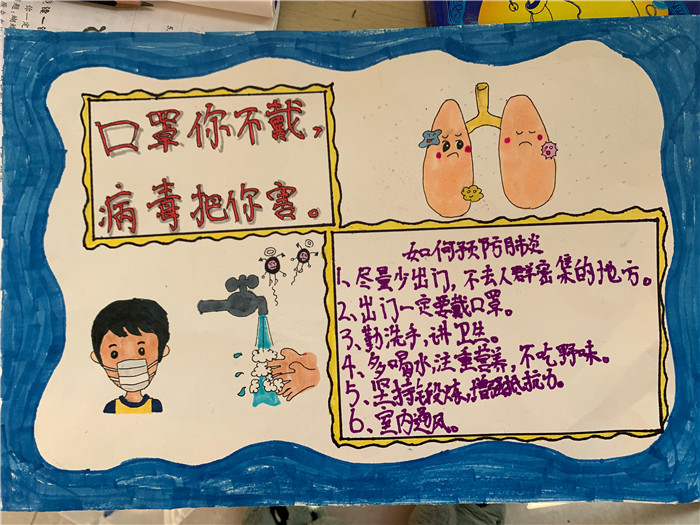 口罩你不戴，
病毒把你害。
如何预防肺炎
1、尽量少出门，不去人群密集的地方。
2、出门一定要戴口罩。
3、勤洗手，讲卫生。
4、多喝水，注重营养，不吃野味。
5、坚持锻炼，增强抵抗力。
6、室内通风。